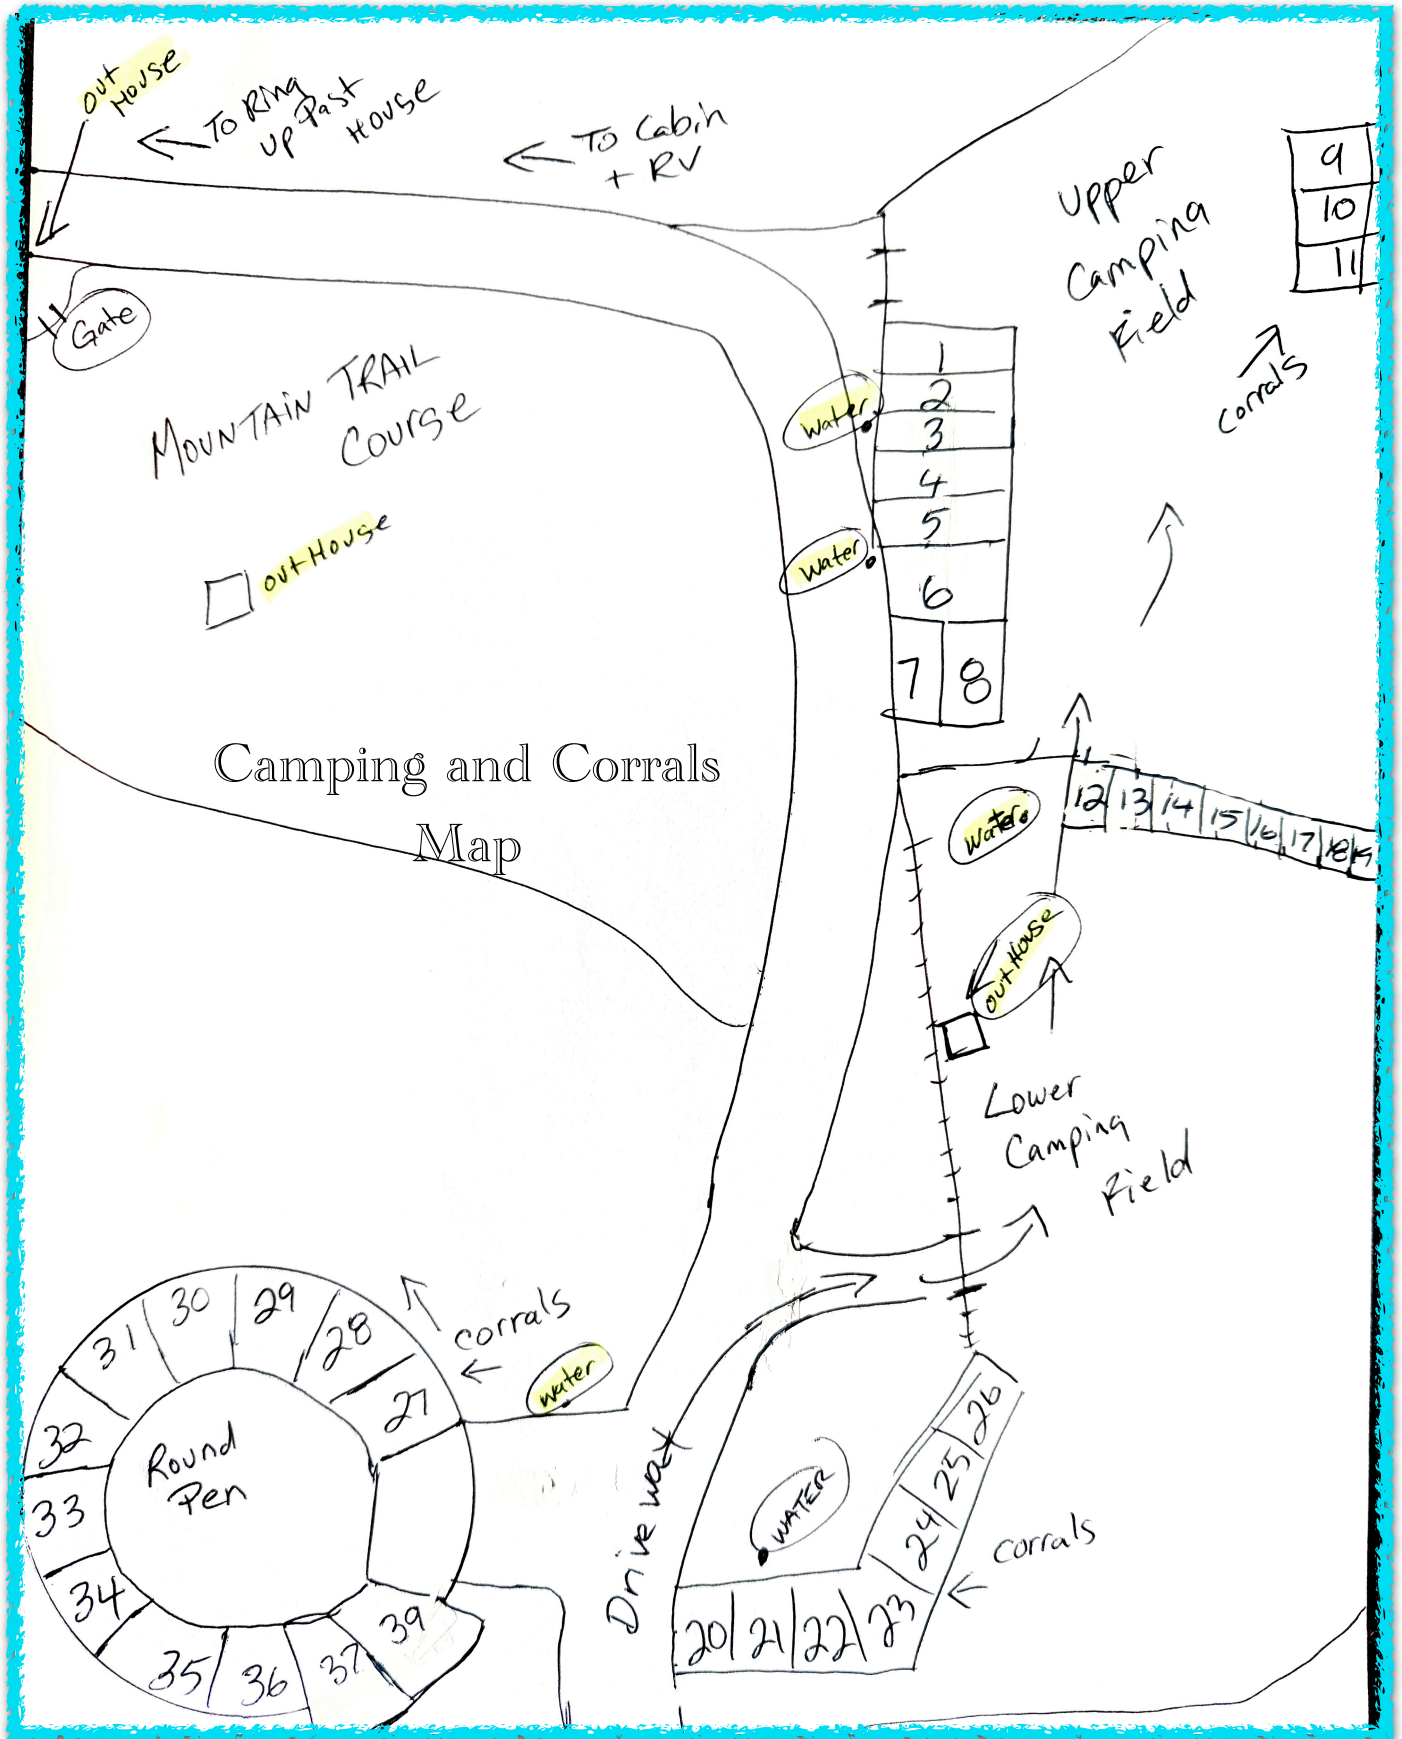 out
House
To Ring
up Past
House
To Cabin
+ RV
Upper
Camping
Field
9
10
11
corrals
Gate
MOUNTAIN TRAIL
COURSE
1
2
3
4
5
6
7
8
Water
Water
out House
Camping and Corrals
Map
Water
12
13
14
15
16
17
18
19
out House
Lower
Camping
Field
corrals
water
27
28
29
30
31
32
33
34
35
36
37
39
Round
Pen
Driveway
WATER
20
21
22
23
24
25
26
corrals